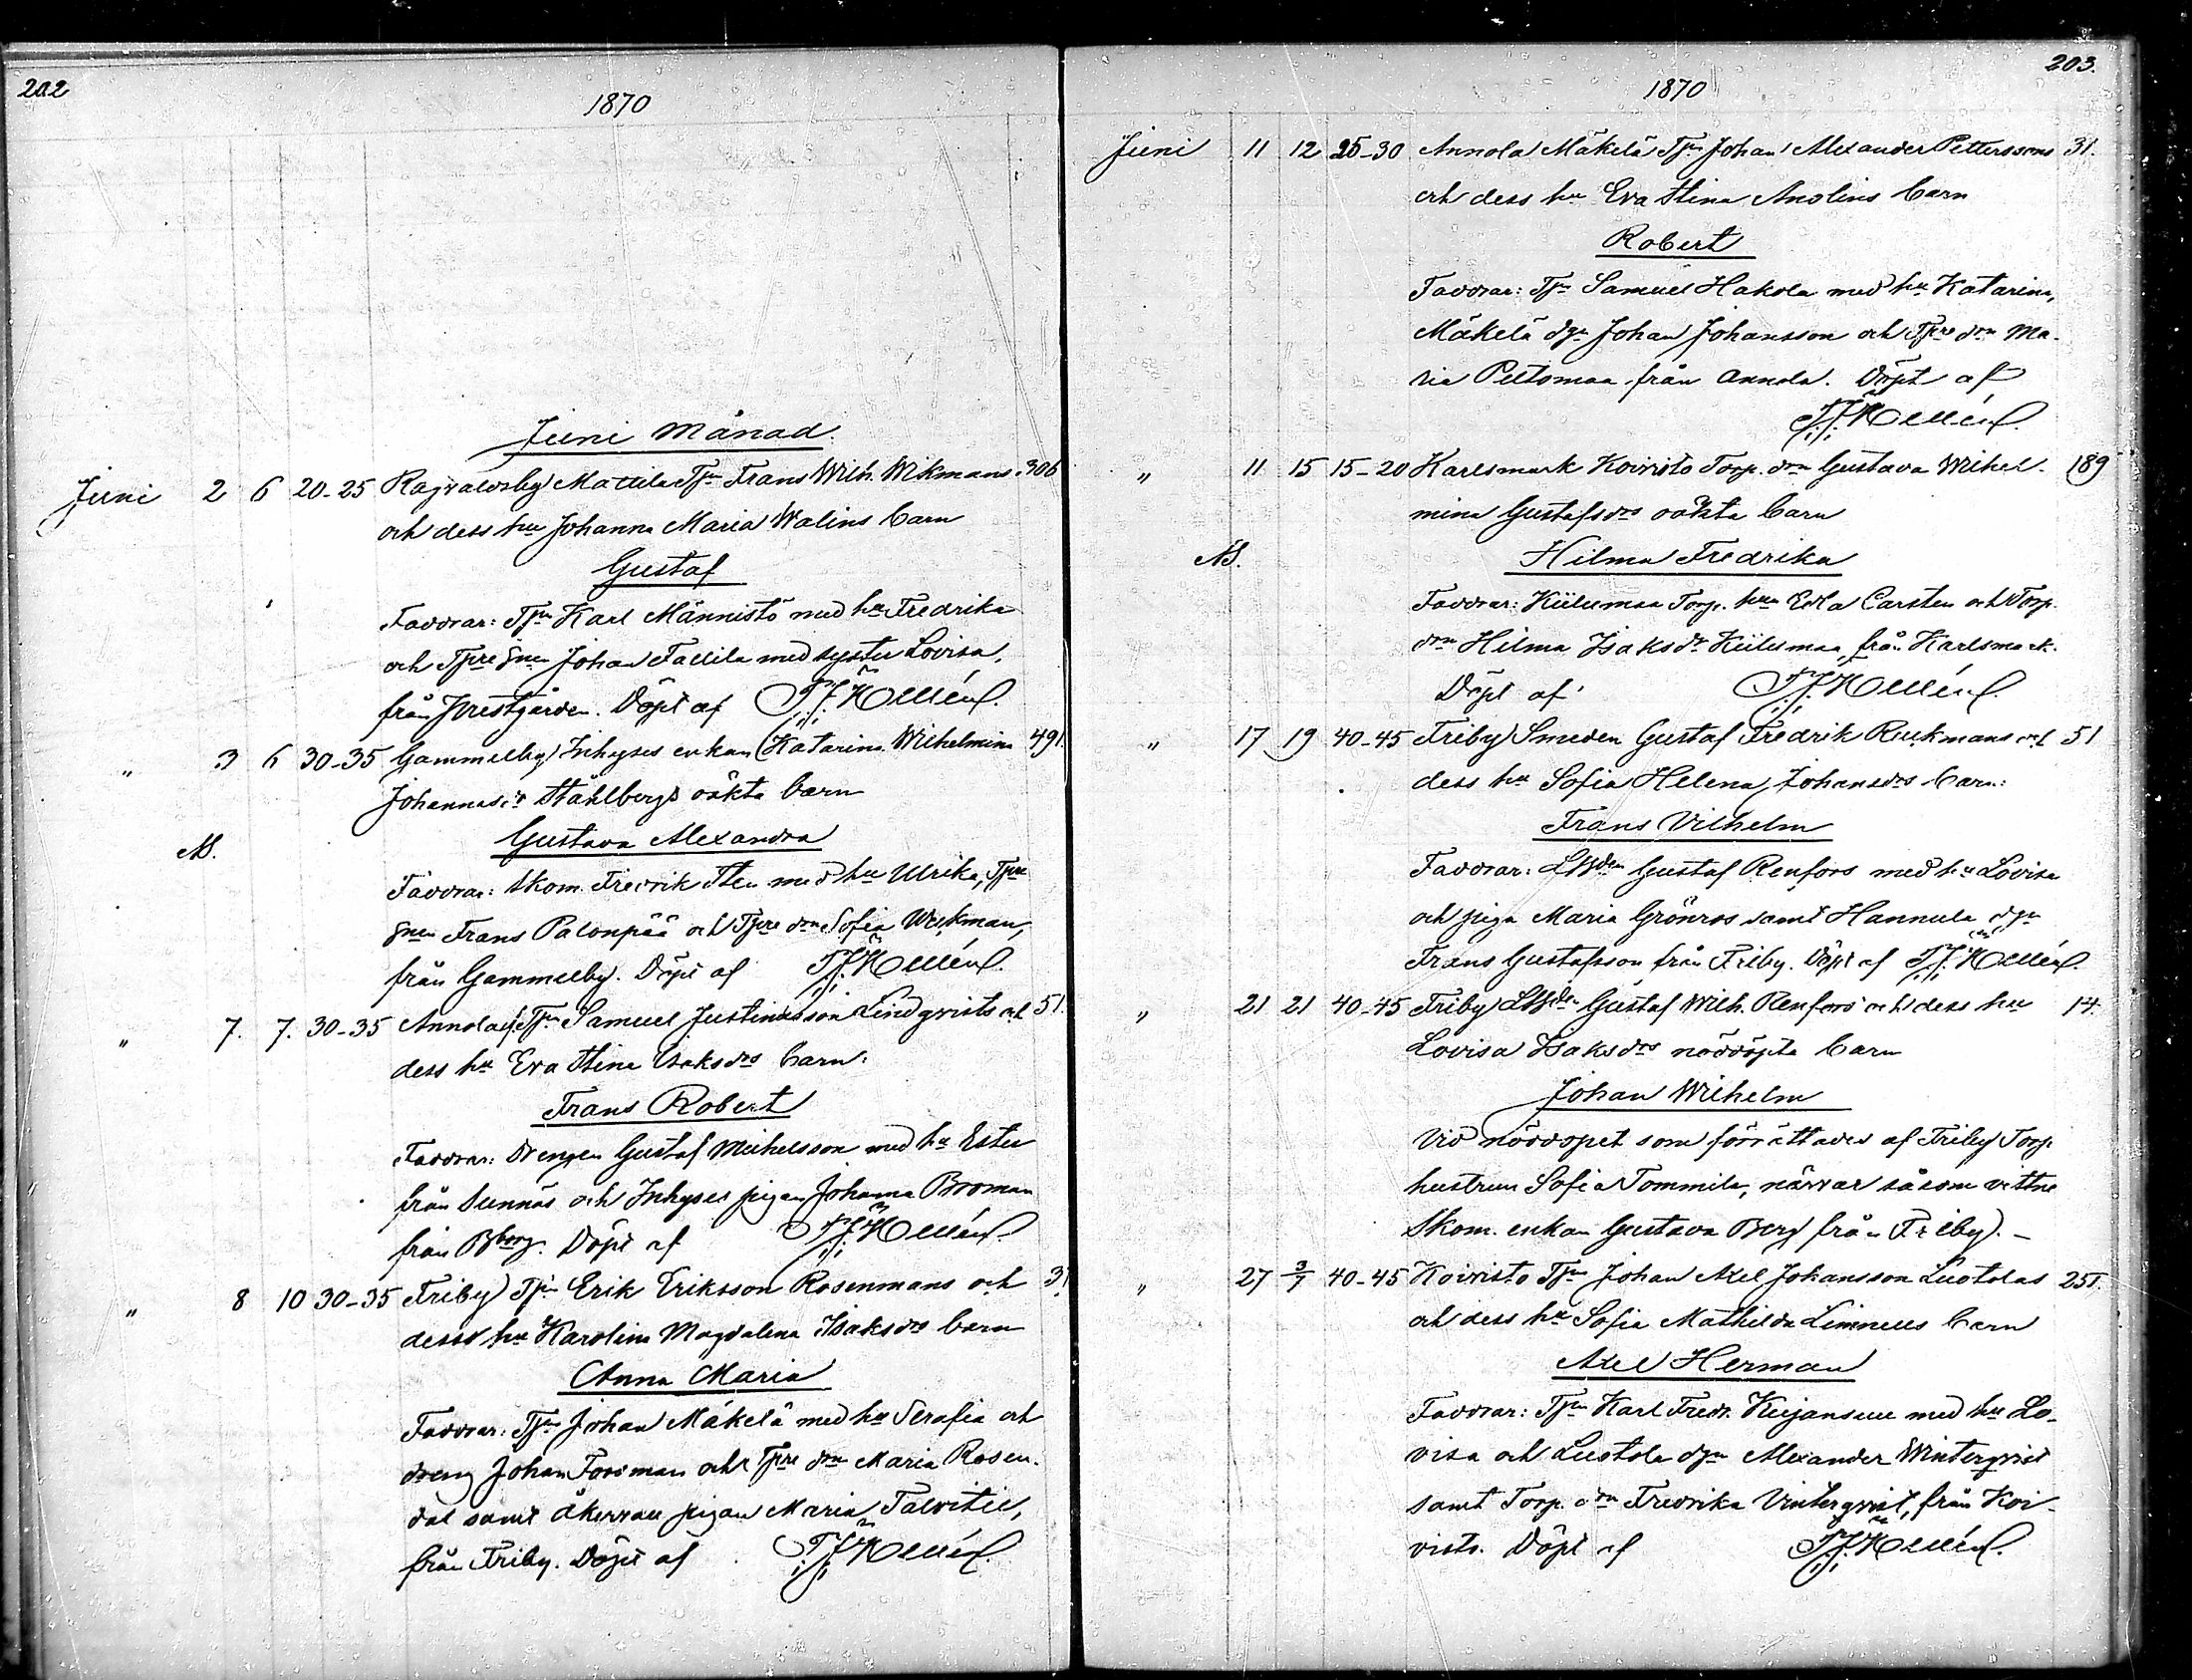 202
1870
Juni Månad.
Juni 2 6 20-25 Ragvaldsby Mattila Tjn Frans Wilh. Wikmans 306
och dess hu Johanna Maria Walins barn
Gustaf
Faddrar: Tjn Karl Männistö med hu Fredrika
och Tjre gnen Johan Fallila med syster Lovisa,
från Prestgården. Döpt af
" 3 6 30-35 Gammelby Inhyses enkan Katarina Wilhelmina 491.
Johannesdr Ståhlbergs oäkta barn
NB. Gustava Alexandra
Faddrar: Skom. Fredrik Sten med hu Ulrika, Tjre
gnen Frans Palonpää och Tjre drn Sofia Wickman,
från Gammelby. Döpt af
" 7. 7. 30-35 Annola Tjn Samuel Justinusson Lindqvists och 51.
dess hu Eva Stina Isaksdrs barn:
Frans Robert
Faddrar: Drengen Gustaf Michelsson med hu Ester
från Sunnäs och Inhyses pigan Johanna Broman
från Bborg. Döpt af
" 8 10 30-35 Friby Tjn Erik Eriksson Rosenmans och 31
dess hu Karolina Magdalena Isaksdrs barn
Anna Maria
Faddrar: Tjn Johan Mäkelä med hu Serafia och
dreng Johan Forsman och Tjre drn Maria Rosen-
dal samt åkervall pigan Maria Talvitie,
från Friby. Döpt af
203.
1870
Juni 11 12 25-30 Annola Mäkelä Tjn Johan Alexander Petterssons 31.
och dess hu Eva Stina Anolins barn
Robert
Faddrar: Tjn Samuel Hakola med hu Katarina,
Mäkelä dgn Johan Johansson och Tjre drn Ma-
ria Peltomaa från Annola. Döpt af
" 11 15 15-20 Karlsmark Koivisto Torp. drn Gustava Wilhel- 189
mina Gustafsdrs oäkta barn
NB. Hilma Fredrika
Faddrar: Kiilumaa Torp. hun Edla Carsten och Torp.
drn Hilma Isaksdr Kiilumaa från Karlsmark.
Döpt af
" 17 19 40-45 Friby Smeden Gustaf Fredrik Ruckmans och 51
dess hu Sofia Helena Johansdrs barn:
Frans Vilhelm
Faddrar: Gustaf Renfors med hu Lovisa
och piga Maria Grönros samt Hannula dgn
Frans Gustafsson från Friby. Döpt af
" 21 21 40-45 Friby Gustaf Wilh. Renfors och dess hu 14.
Lovisa Isaksdrs nöddöpta barn
Johan Wilhelm
Vid nöddopet som förrättades af Friby Torp.
hustrun Sofia Tommila, närvar såsom vittne
Skom. enkan Gustava Berg från Friby. -
" 27 3/7 40-45 Koivisto Tjn Johan Axel Johansson Luotolas 251.
och dess hu Sofia Mathilda Limnells barn
Axel Herman
Faddrar: Tjn Karl Fredr. Kujansuu med hu Lo-
visa och Luotola dgn Alexander Winterqvist
samt Torp. drn Fredrika Vinterqvist, från Koi-
visto. Döpt af